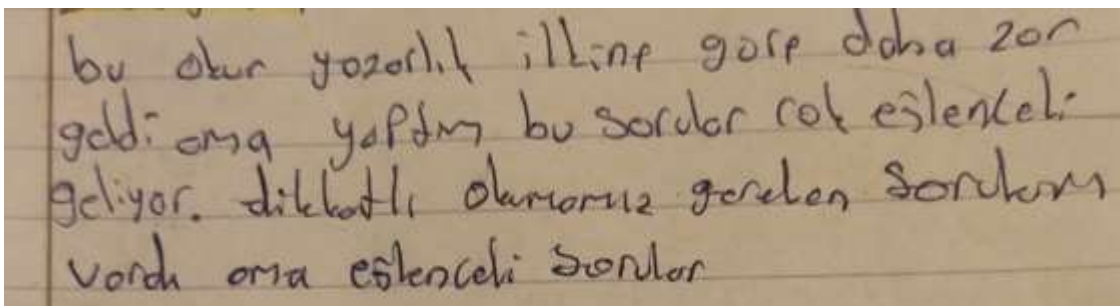 bu okur yazarlık ilkine göre daha zor
geldi ama yaptım bu sorular çok eğlenceli
geliyor. dikkatli okumamız gereken
vardı ama eğlenceli sorular